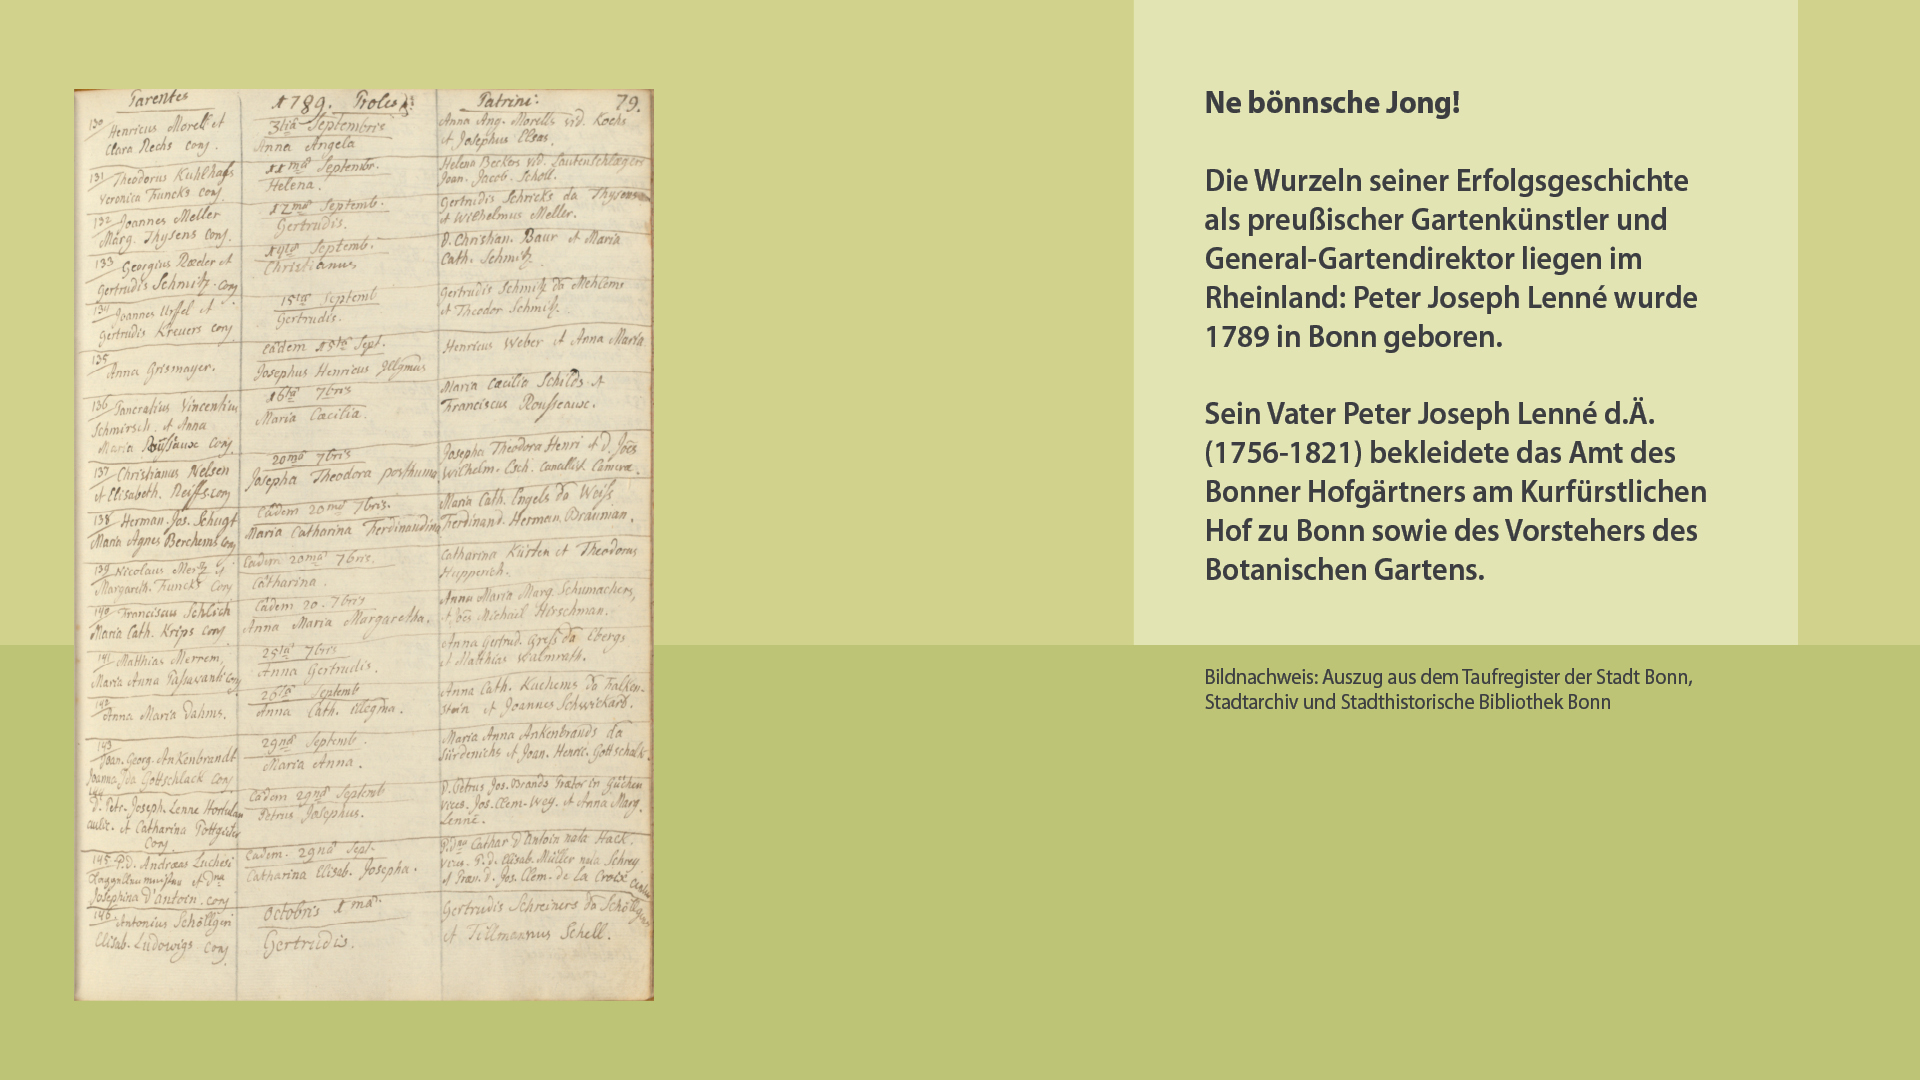 Parentes
1789. Proles
Patrini:
79.
130 Henricus Morell et
Clara Rechs conj.
3tia Septembris
Anna Angela
Anna Ang. Morells vid. Kochs
et Josephus Elsas.
131 Theodorus Kuhlhaas
Veronica Funcks conj.
11ma Septembr.
Helena.
Helena Beckers vid. Lautenschlægers
Joan. Jacob. Scholl.
132 Joannes Meller
Marg. Thysens conj.
12ma Septemb.
Gertrudis.
Gertrudis Schricks da Thysens
et Wilhelmus Meller.
133 Georgius Rœder et
Gertrudis Schmitz. conj
14ta Septemb.
Christianus
D. Christian. Baur et Maria
Cath. Schmitz.
134 Joannes Urfel et
Gertrudis Kreuers conj
15ta Septemb
Gertrudis.
Gertrudis Schmitz da Mehlems
et Theodor Schmitz.
135
Anna Grismayer.
Eadem 15ta Sept.
Josephus Henricus Illgmus
Henricus Weber et Anna Maria
136 Pancratius Vincentius
Schmirsch. et Anna
Maria conj
16ta 7bris
Maria Cæcilia.
Maria Cæcilia Schilds et
Franciscus Rousseaux.
137 Christianus Nelsen
et Elisabeth. Reiffs. conj
20ma 7bris
Josepha Theodora posthuma
Josepha Theodora Henri et d. Joes
Wilhelm. Esch. Cancellist. Cameræ.
138 Herman. Jos. Schugt
Maria Agnes Berchems conj
Eadem 20ma 7bris.
Maria Catharina Ferdinandina
Maria Cath. Engels da Weiss
Ferdinand. Herman. Braunian.
139 Nicolaus Mertz et
Margareth. Funcks conj
Eadem 20ma 7bris.
Catharina.
Catharina Kürten et Theodorus
Hupperich.
140 Franciscus Schlich
Maria Cath. Krips conj
Eadem 20. 7bris
Anna Maria Margaretha.
Anna Maria Marg. Schumachers,
et Joes Michael Hirschman.
141 Matthias Merrem,
Maria Anna Passavanti conj
25ta 7bris
Anna Gertrudis.
Anna Gertrud. Gress da Ebergs
et Matthias Walmrath.
142
Anna Maria Dahms.
26ta Septemb
Anna Cath. illegma.
Anna Cath. Kuchems da Falken-
stein et Joannes Schwickard.
143
Joan. Georg. Ankenbrandt
Joanna Ida Gottschlack conj
29na Septemb.
Maria Anna.
Maria Anna Ankenbrands da
Sürdenichs et Joan. Henric. Gottschalk.
144
D. Petr. Joseph. Lenne Hortulan
aulic. et Catharina Pottgeter
conj.
Eadem 29na Septemb
Petrus Josephus.
D. Petrus Jos. Brands Prætor in Güchen
vices. Jos. Clem. Woy. et Anna Marg.
Lenné.
145 P.d. Andreas Luchesi
et Dna
Josephina d'Antoin. conj
Eadem. 29na Sept.
Catharina Elisab. Josepha.
P. dna Cathar d'Antoin nata Hack.
vices. P.d. Elisab. Müller nata Schrey
et Præn. d. Jos. Clem. de la Croix
146 Antonius Schöllgen
Elisab. Ludowigs conj
Octobris 1ma
Gertrudis.
Gertrudis Schreiners da Schöllgens
et Tillmannus Schell.
Ne bönnsche Jong!
Die Wurzeln seiner Erfolgsgeschichte
als preußischer Gartenkünstler und
General-Gartendirektor liegen im
Rheinland: Peter Joseph Lenné wurde
1789 in Bonn geboren.
Sein Vater Peter Joseph Lenné d.Ä.
(1756-1821) bekleidete das Amt des
Bonner Hofgärtners am Kurfürstlichen
Hof zu Bonn sowie des Vorstehers des
Botanischen Gartens.
Bildnachweis: Auszug aus dem Taufregister der Stadt Bonn,
Stadtarchiv und Stadthistorische Bibliothek Bonn